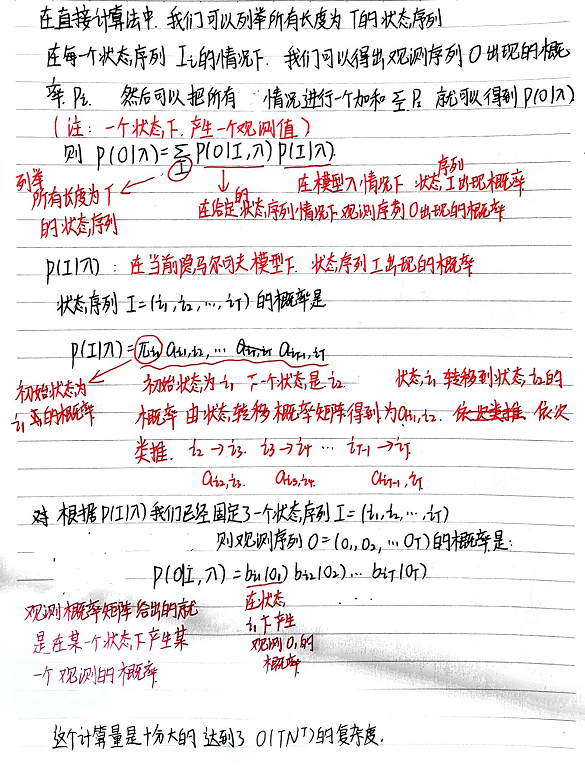 在直接计算法中. 我们可以列举所有长度为T的状态序列
在每一个状态序列 Ii的情况下. 我们可以得出观测序列O出现的概
率 Pi. 然后可以把所有 情况进行一个加和 ΣPi 就可以得到P(O|λ)
(注: 一个状态下. 产生一个观测值)
则 P(O|λ)=Σ_I P(O|I,λ)P(I|λ).
列举
所有长度为T
的状态序列
在模型λ情况下 状态序列I出现概率
在给定的状态序列情况下观测序列O出现的概率
P(I|λ): 在当前隐马尔可夫模型下. 状态序列I出现的概率
状态序列 I=(i1,i2,…,iT) 的概率是
P(I|λ)=πi1 ai1,i2,… aiT-1,iT
初始状态为
i1 的概率
初始状态为i1 下一个状态是i2 状态i1转移到状态i2的
概率 由状态转移概率矩阵得到为ai1,i2. 依次类推 依次
类推. i2→i3. i3→i4 … iT-1→iT
ai2,i3. ai3,i4. aiT-1,iT
对 根据P(I|λ)我们已经固定了一个状态序列I=(i1,i2,…,iT)
则观测序列O=(o1,o2,…oT)的概率是:
P(O|I,λ)=bi1(o1)bi2(o2)…biT(oT)
观测概率矩阵给出的就
是在某一个状态下产生某
一个观测的概率
在状态
i1下产生
观测O1的
概率
. . .
这个计算量是十分大的 达到了 O(TN^T)的复杂度.